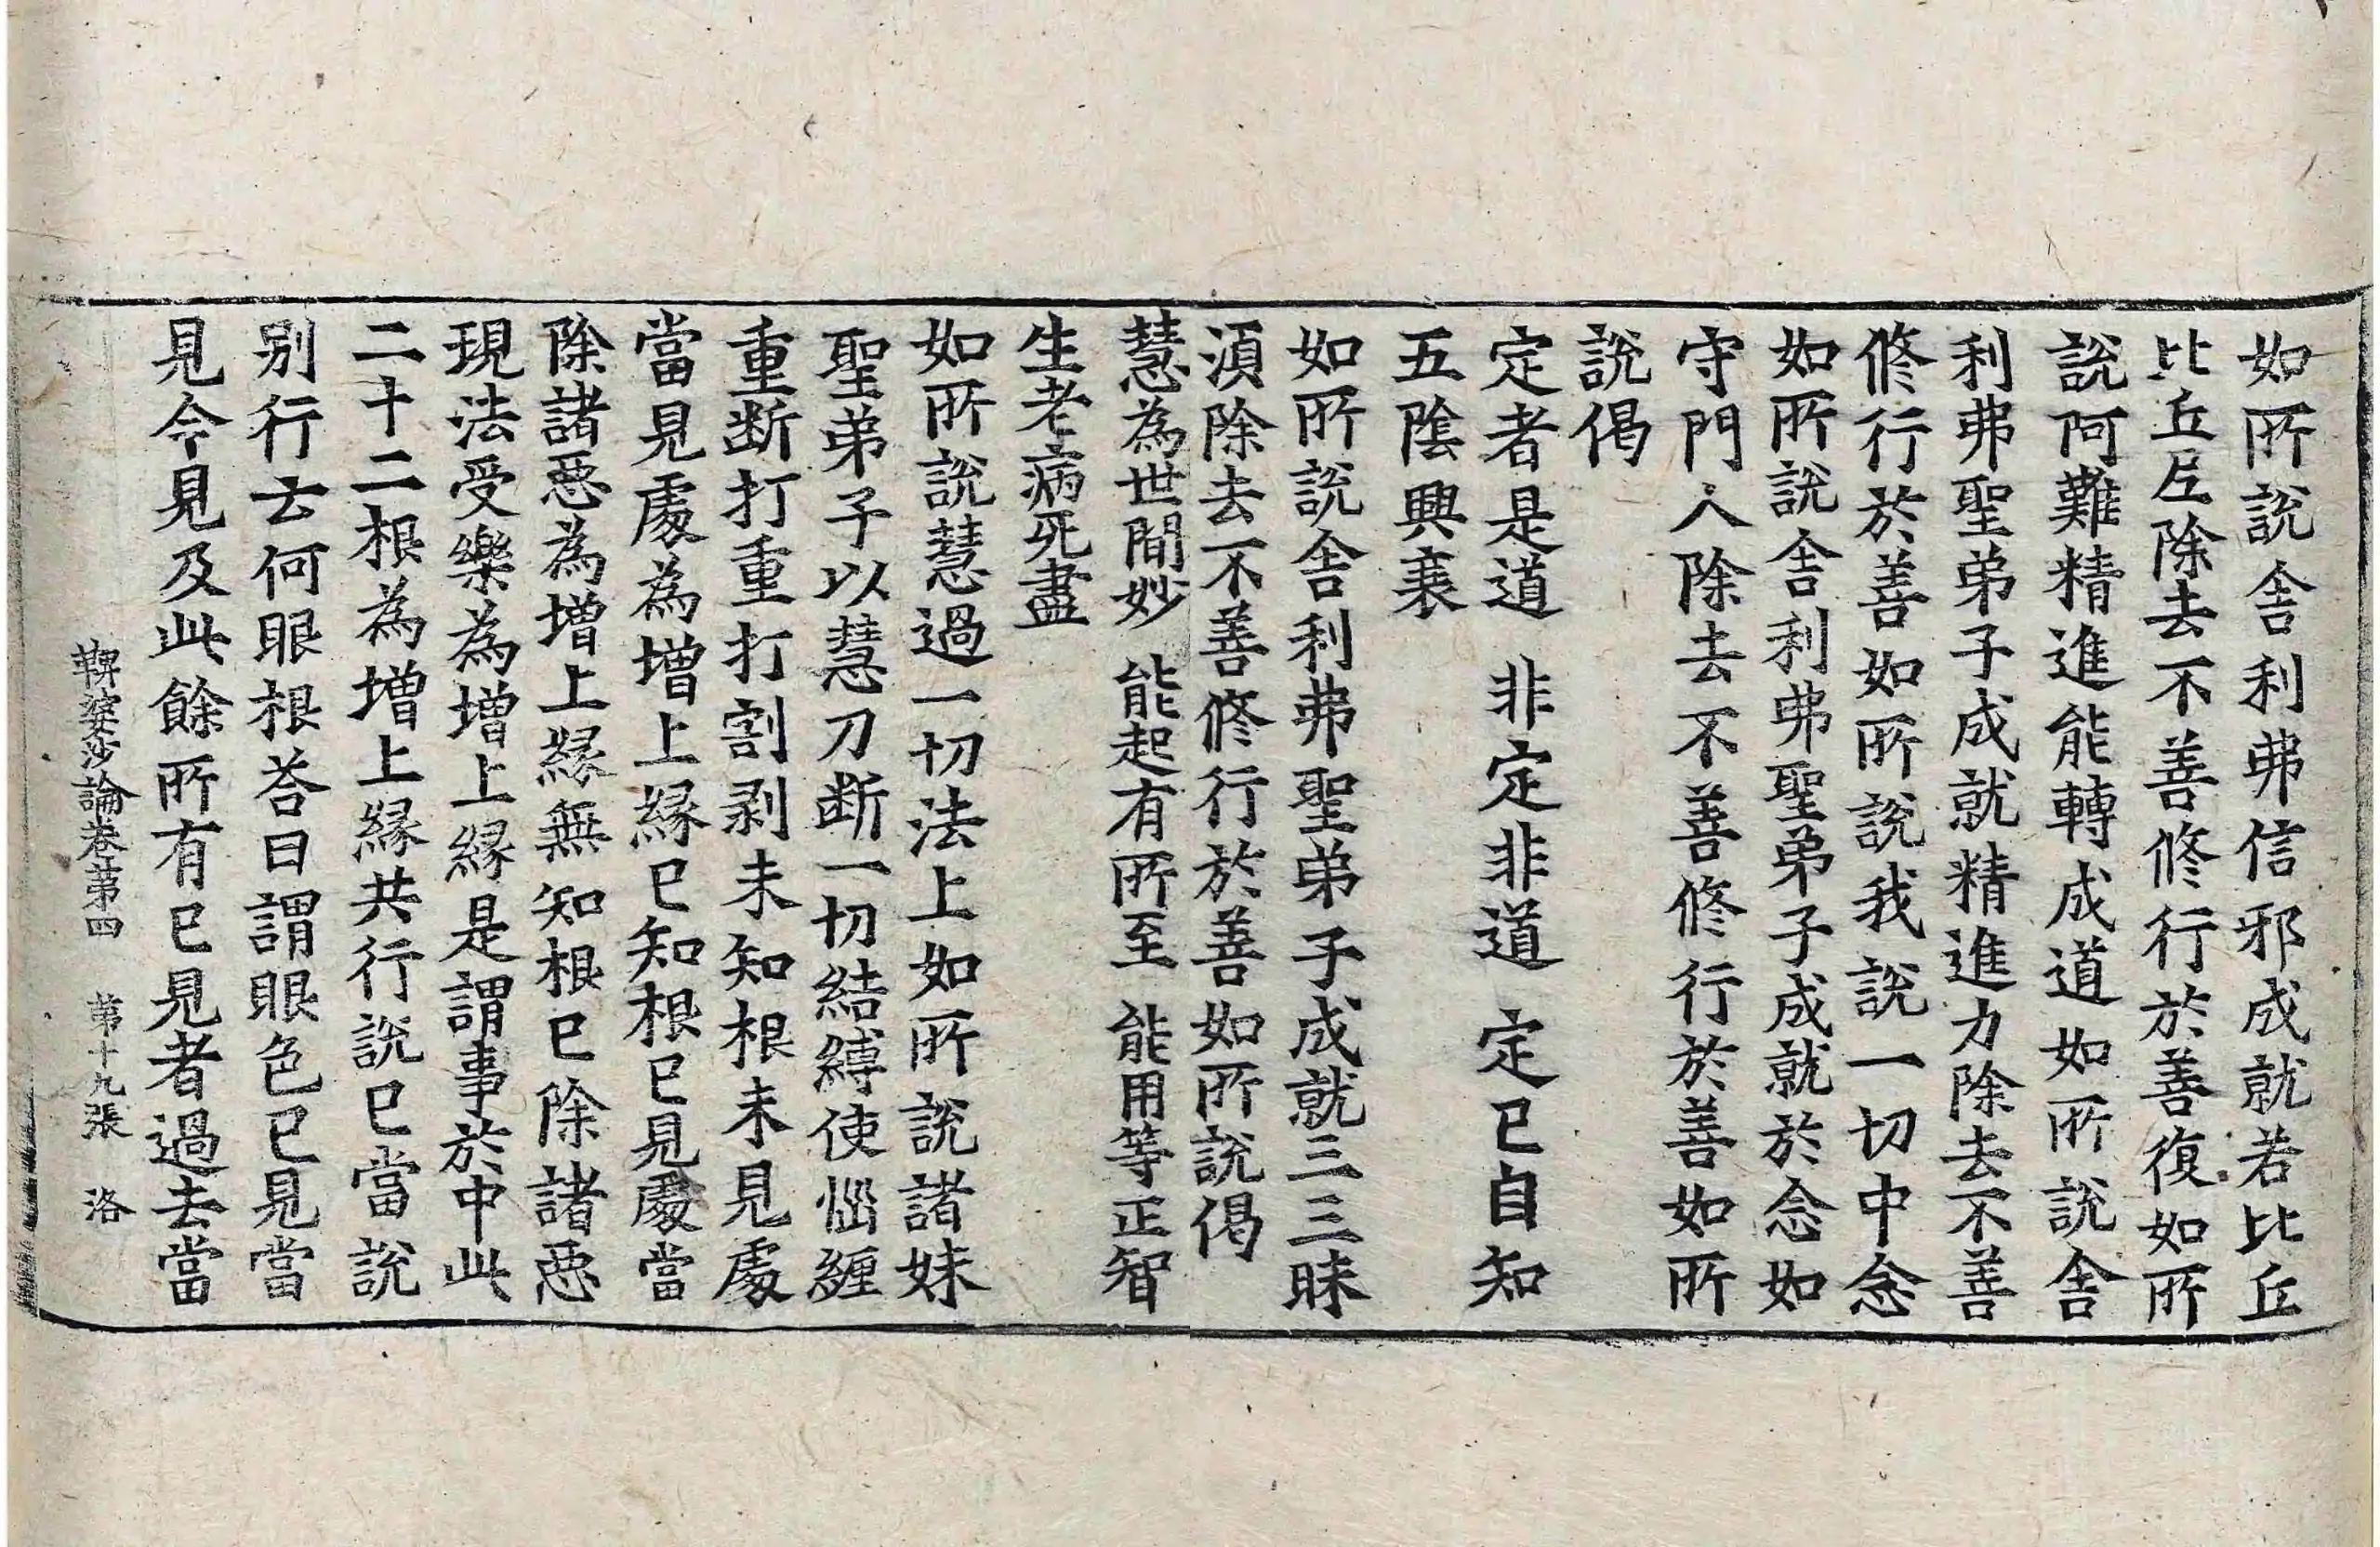 如所說舍利弗信邪成就若比丘
比丘𡰱除去不善修行於善復如所
說阿難精進能轉成道如所說舍
利弗聖弟子成就精進力除去不善
修行於善如所說我說一切中念
如所說舍利弗聖弟子成就於念如
守門人除去不善修行於善如所
說偈
定者是道 非定非道 定已自知
五陰興衰
如所說舍利弗聖弟子成就三三昧
湏除去不善修行於善如所說偈
慧為世間妙 能起有所至 能用等正智
生老病死盡
如所說慧過一切法上如所說諸妹
聖弟子以慧刀断一切結縛使惱纏
重断打重打割剥未知根未見處
當見處為增上緣已知根已見處當
除諸惡為增上緣無知根已除諸惡
現法受樂為增上緣是謂事於中此
二十二根為增上緣共行說已當說
别行云何眼根荅曰謂眼色已見當
見今見及此餘所有已見者過去當
鞞婆沙論卷苐四 苐十九張 洛